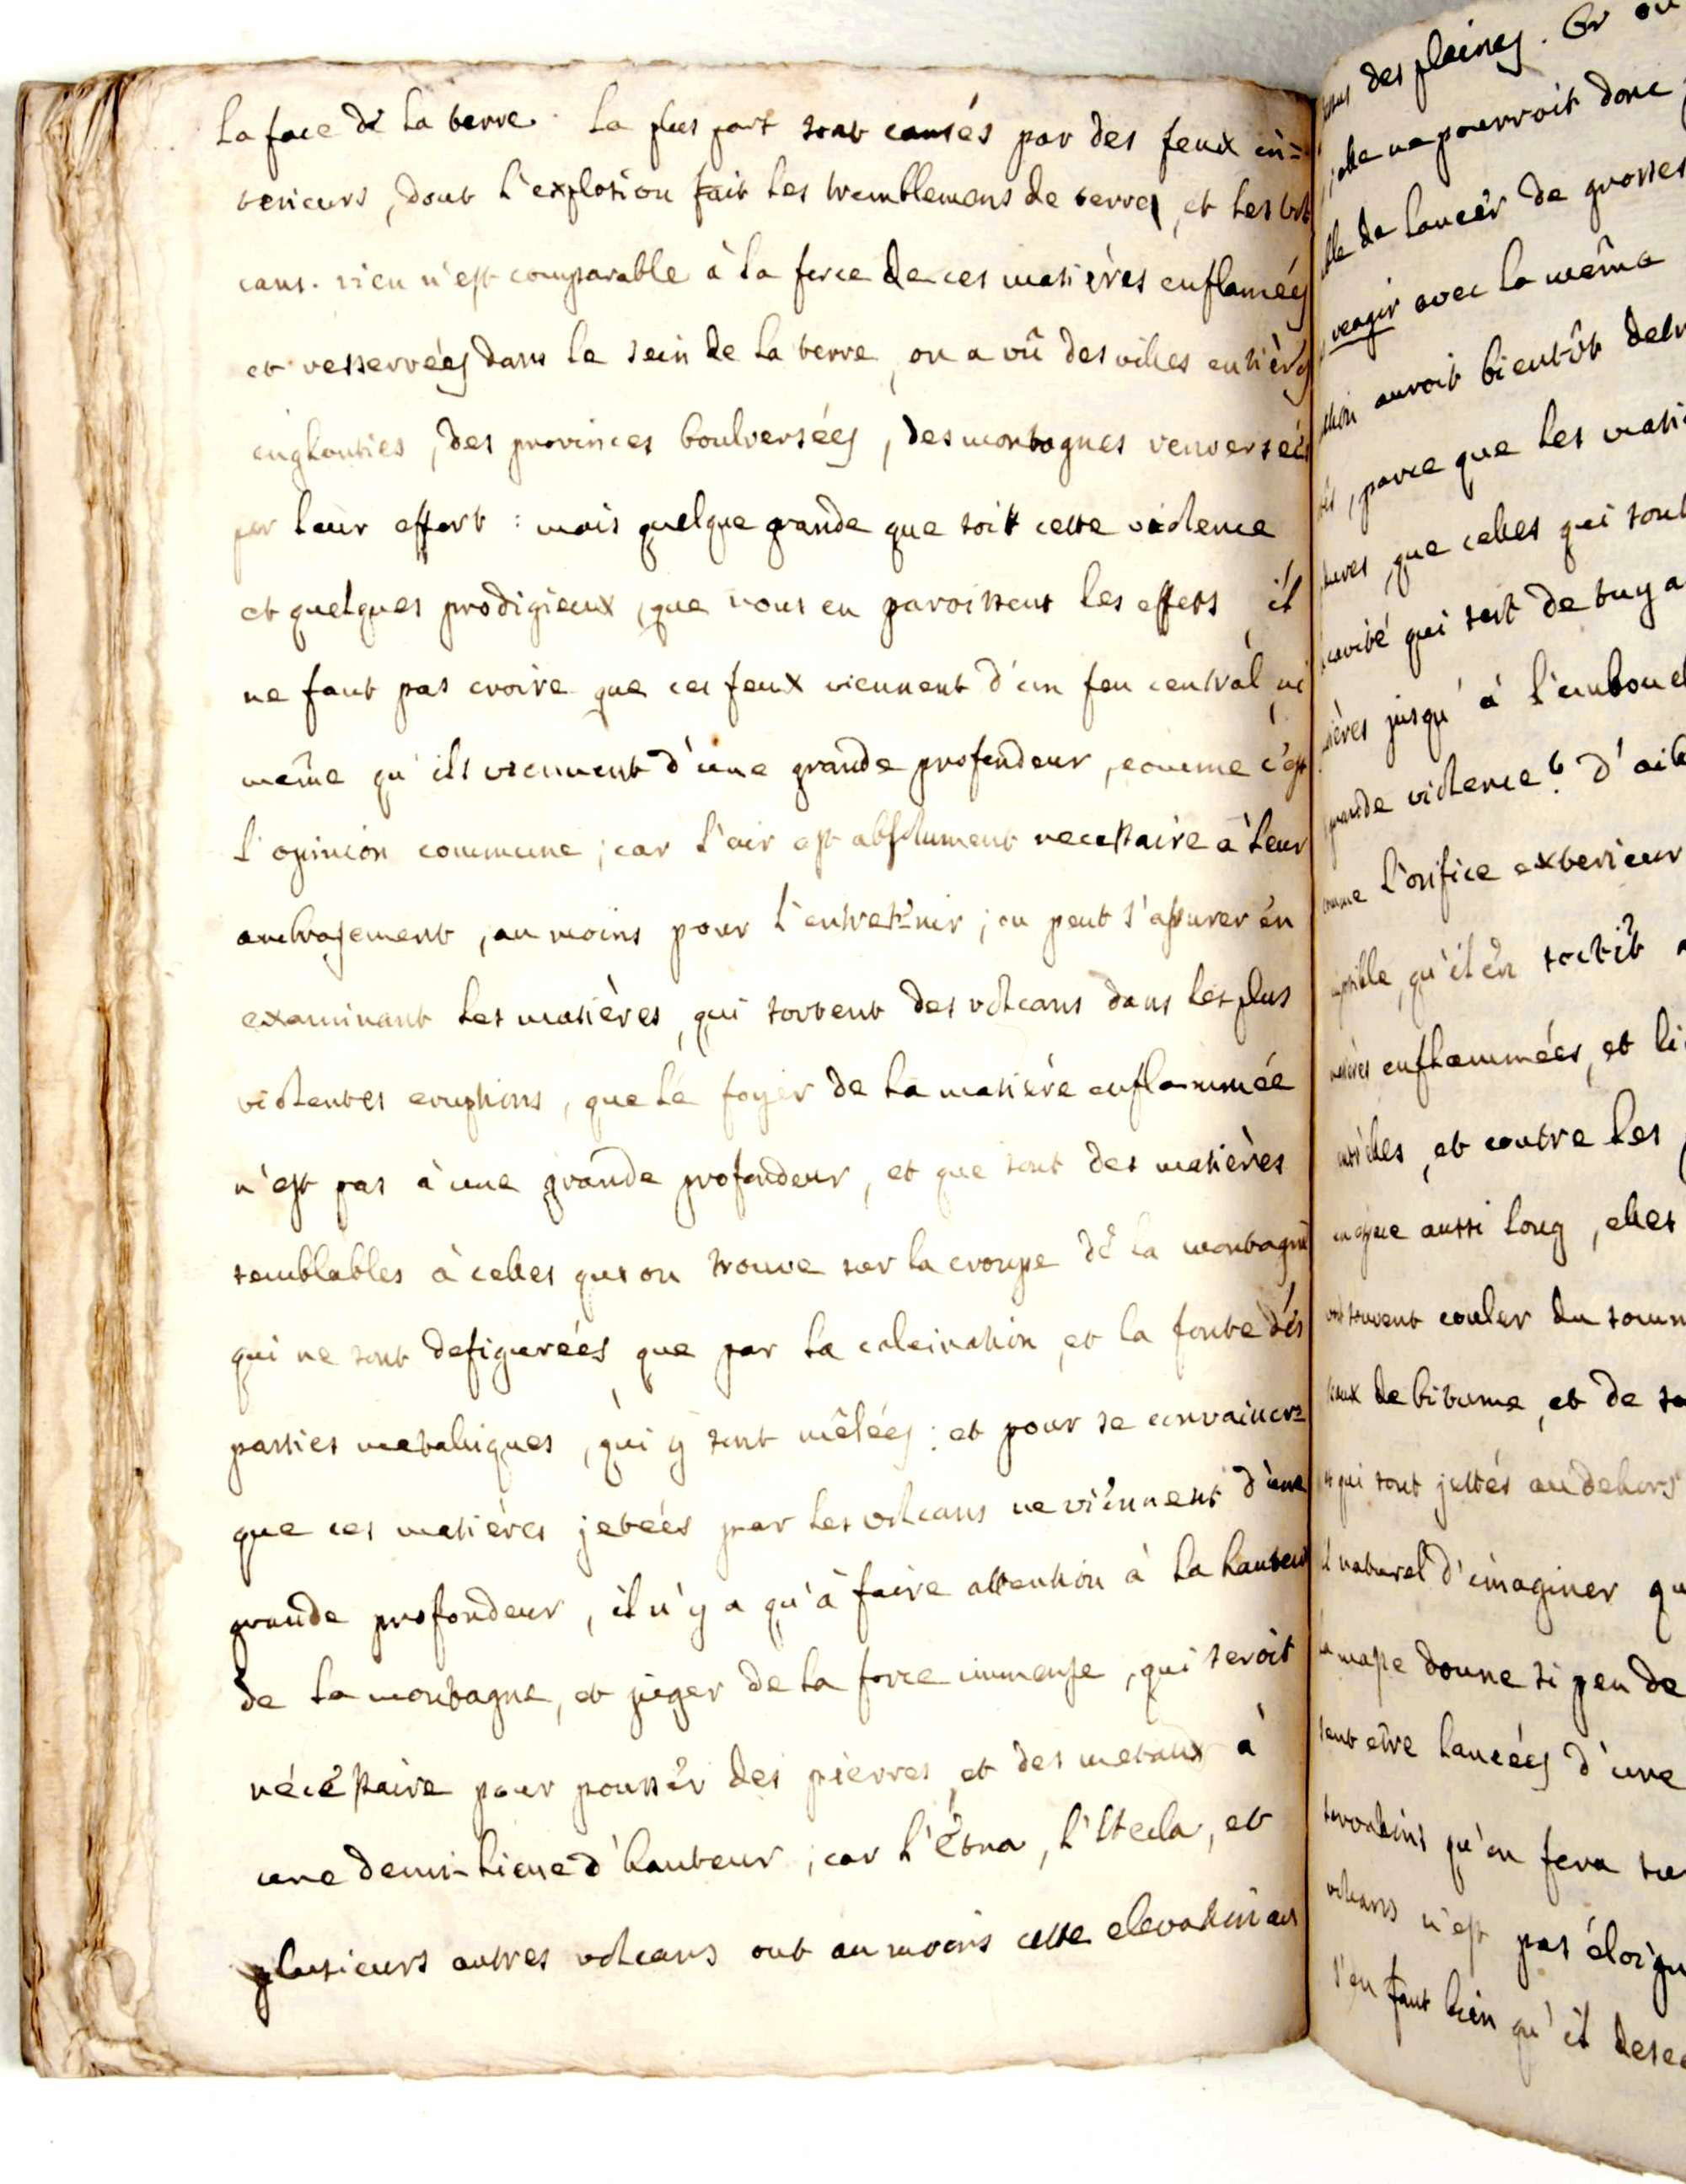 la face de la terre. La plus part sont causés par des feux in=
terieurs, dont l'explosion fait les tremblemens de terre, et les vol
cans. rien n'est comparable à la force de ces matières enflamées
et resserrées dans le sein de la terre, on a vû des villes entières
englouties, des provinces boulversées, des montagnes renversées
par leur effort : mais quelque grande que soit cette violence
et quelques prodigieux, que nous en paroissent les effets, il
ne faut pas croire que ces feux viennent d'un feu central, ni
même qu'ils viennent d'une grande profondeur, comme c'est
l'opinion commune ; car l'air est absolument necessaire à leur
embrasement, au moins pour l'entretenir ; on peut s'assurer en
examinant les matières, qui sortent des volcans dans les plus
violentes eruptions, que le foyer de la matière enflammée
n'est pas à une grande profondeur, et que sont des matières
semblables à celles qu'on trouve sur la croupe de la montagne
qui ne sont defigurées que par la calcination, et la fonte des
parties metaliques, qui y sont mêlées : et pour se convaincre
que ces matières jetées par les volcans ne viennent d'une
grande profondeur, il n'y a qu'à faire attention à la hauteur
de la montagne, et juger de la force immense, qui seroit
nécessaire pour pousser des pierres, et des metaux à
une demi-lieue d'hauteur ; car l'Étna, l'Hecla, et
plusieurs autres volcans ont au moins cette elevation au
des plaines. Or on
elle ne pourroit donc
de lancer de grosses
reagir avec la même
auroit bientôt
, parce que les
que celles qui sont
cavité qui sert de tuya
jusqu'à l'embouch
grande violence ? D'ail
l'orifice exterieur
qu'il en sortit
enflammées, et li
et contre les
aussi long, elles
souvent couler du somm
de bitume, et de so
qui sont jettés au dehors
naturel d'imaginer qu
masse donne si peu de
etre lancées d'une
qu'on fera sur
volcans n'est pas éloign
s'en faut bien qu'il desce